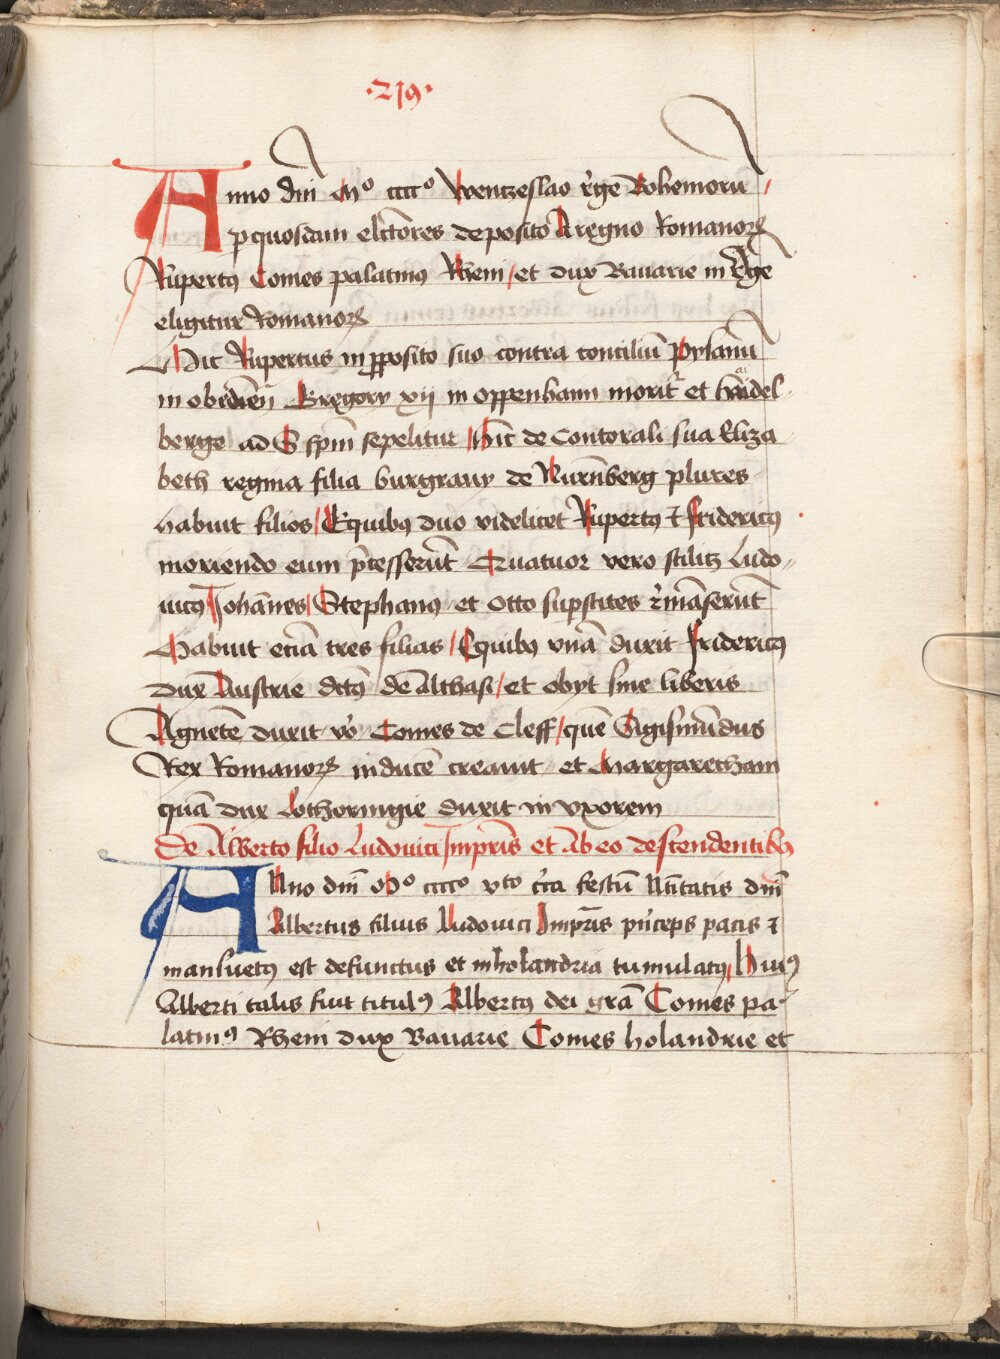 ·219·
Anno dnī Mº ccccº Wentzeslao r̄ge Bohemorū /
p quosdam elc̄tores deposito A regno Romanorꝝ
Rupertꝯ Comes palatinꝯ Rheni / et dux Bauarie in r̄ge
eligitur Romanorꝝ
Hic Rupertus in ꝓposito suo contra conciliū Pysanū
in obedien̄ Gregorÿ xij in Oppenhaim morit᷑ et haidel-
berge ad S spm̄ sepelitur / Hic de Contorali sua Eliza
beth regina filia burgrauÿ de Nurn̄berg plures
habuit filios / Equibꝯ duo videlicet Rupertꝯ ⁊ fridericꝯ
moriendo eum p̄cesserūt Quatuor vero scilitz Ludo-
uicꝯ / Johān̄es / Stephanꝯ et Otto supstites r̄māserūt
Habuit eciā tres filias / Equibꝯ vnā duxit fridericꝯ
dux Austrie dictꝯ de Althasi / et obÿt sine liberis
Agnetē duxit v̊o Comes de Cleff / quē Sigismūdus
Rex Romanorꝝ in ducē creauit et Margaretham
quā dux Lothoringie duxit in vxorem
De Alberto filio Ludouici Impr̄is et Ab eo descendentibꝯ
ANno dnī Mº ccccº vto c̄rca festū Natitatis dnī
Albertus filius Ludouici Impr̄is pn̄ceps pacis ⁊
mansuetꝯ est defunctus et in holandria tumulatꝯ / Huiꝯ
Alberti talis fuit titulꝯ Albertꝯ dei gr̄a Comes pa-
latinꝯ Rheni dux Bauarie Comes holandrie et